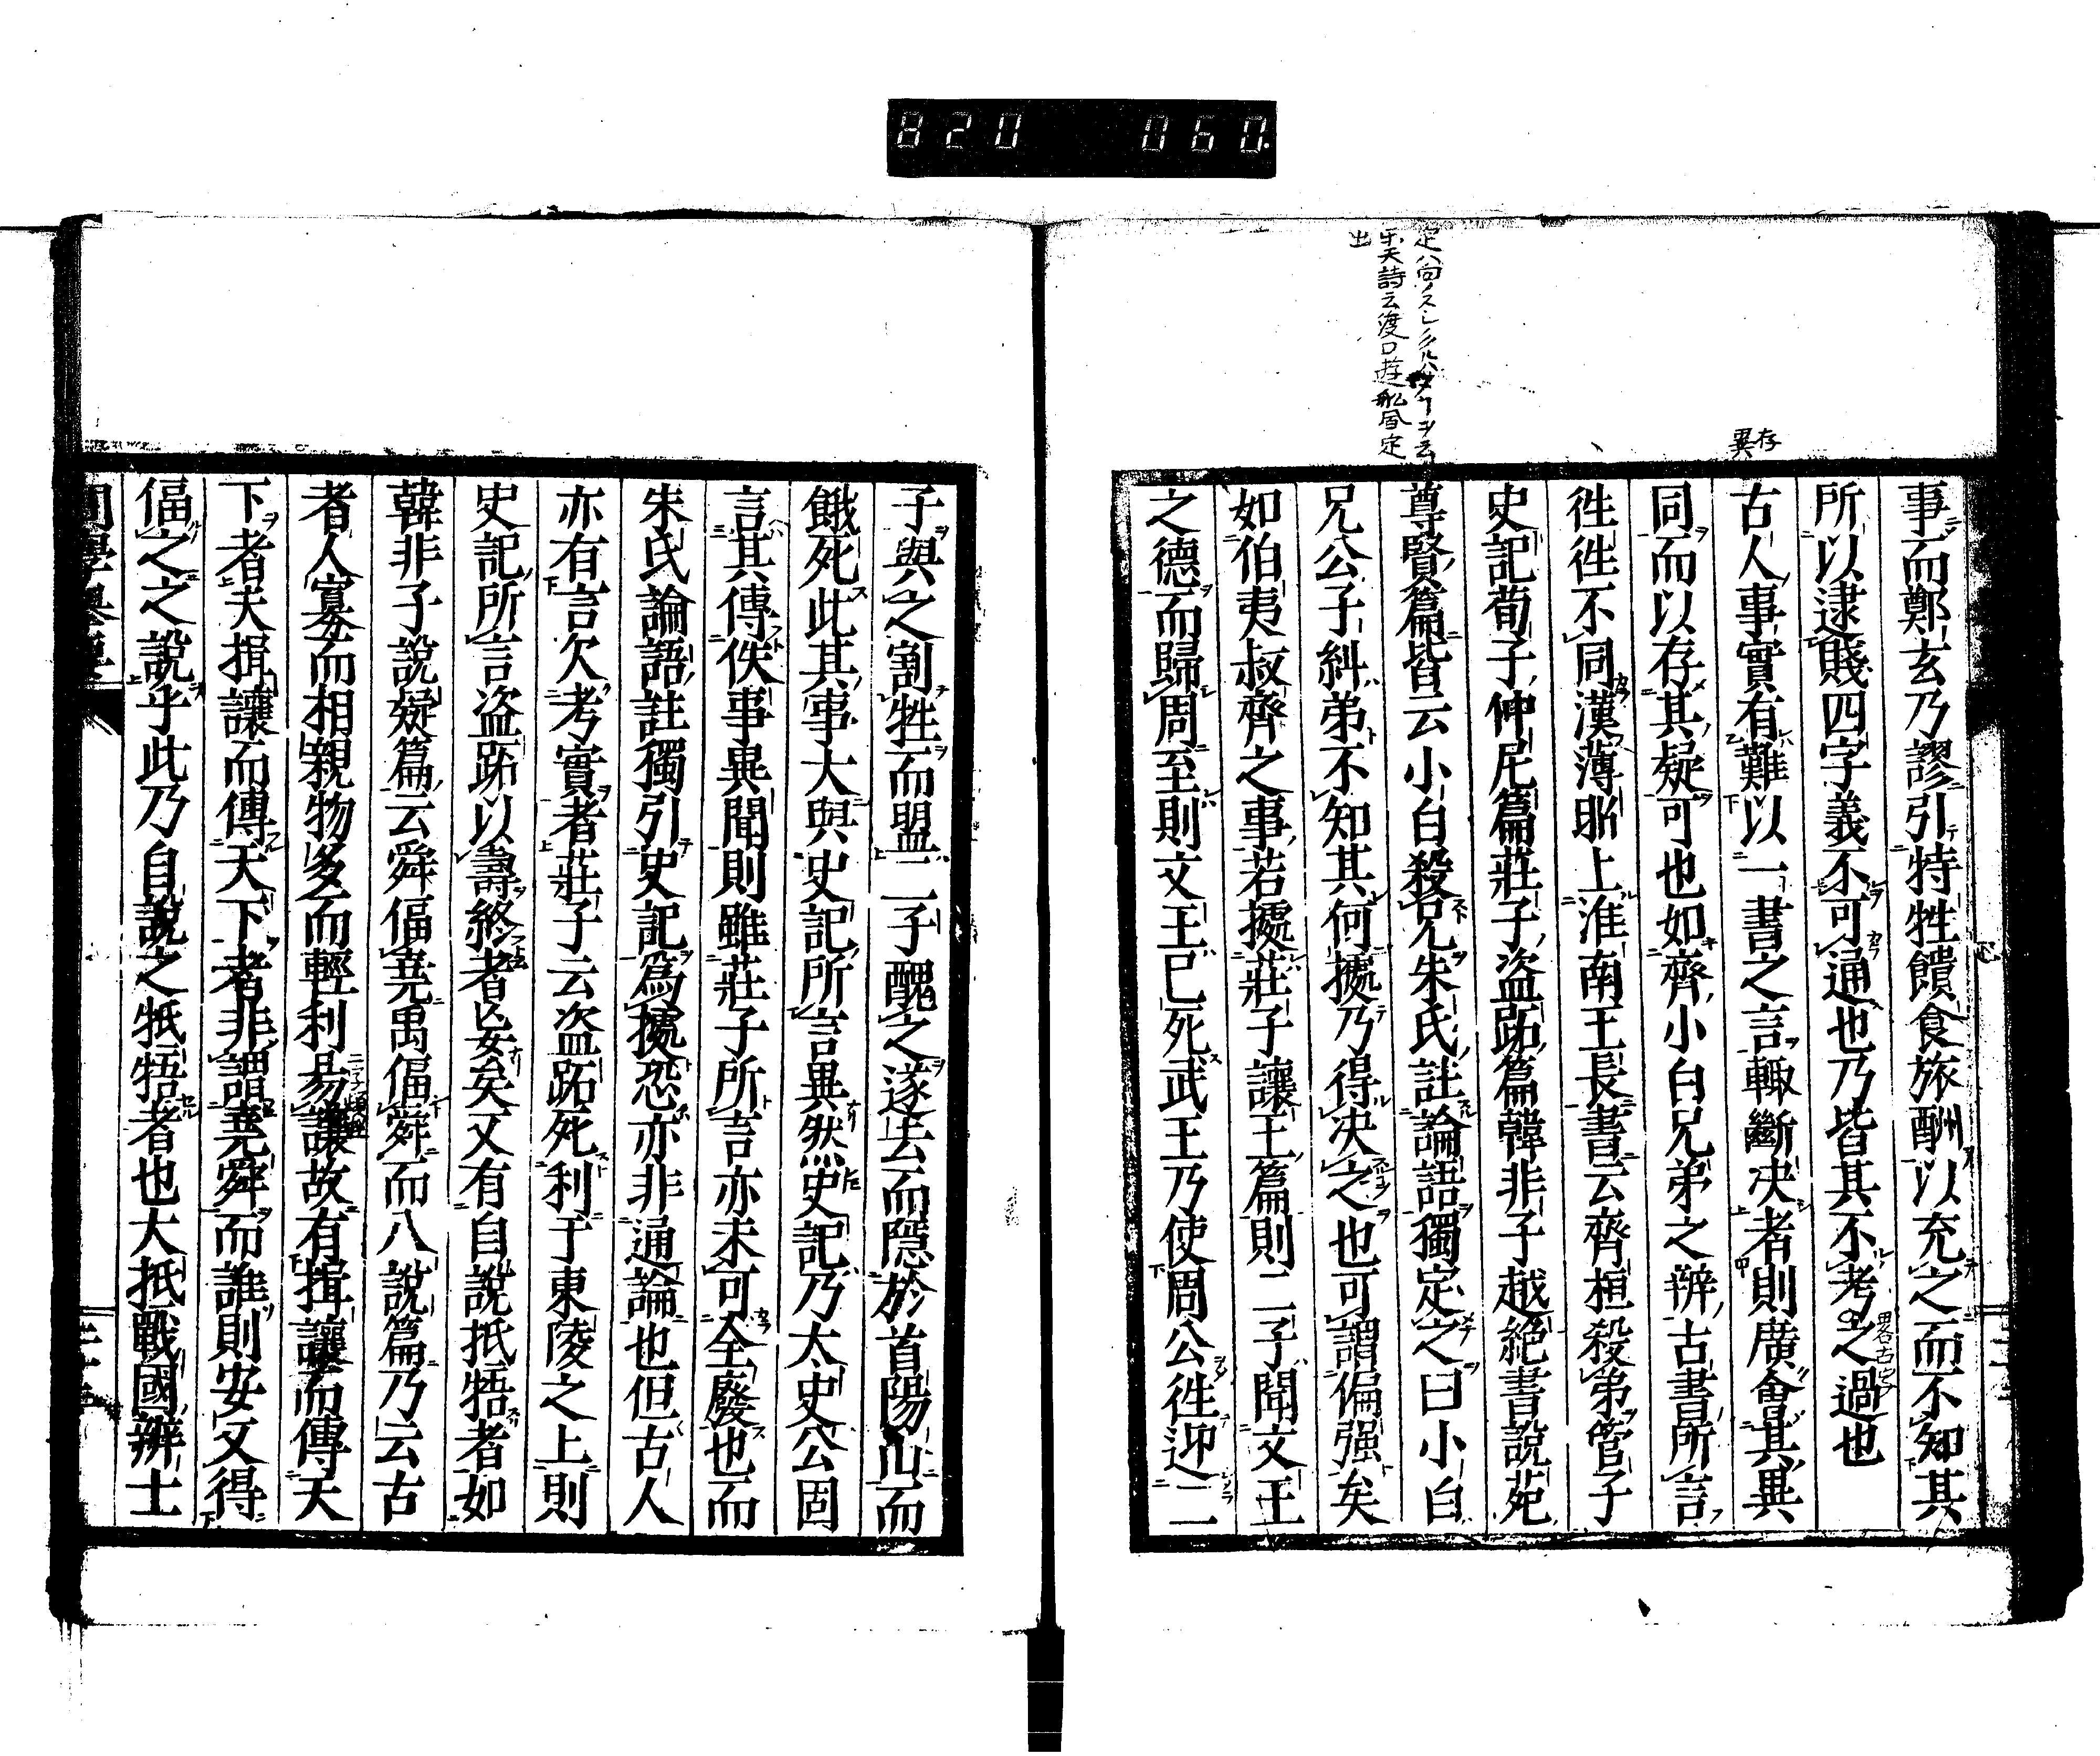 820 060
存
異
事而鄭玄乃謬引特牲饋食旅酬以充之而不知其
所以逮賤四字義不可通也乃皆其不考之過也
古人事實有難以一書之言輙斷决者則廣會其異
同而以存其疑可也如齊小白兄弟之辨古書所言
徃徃不同漢薄昭上淮南王長書云齊桓殺弟管子
史記荀子仲尼篇莊子盗跖篇韓非子越絕書說苑
尊賢篇皆云小白殺兄朱氏註論語獨定之曰小白
兄公子糾弟不知其何據乃得决之也可謂偏强矣
如伯夷叔齊之事若據莊子讓王篇則二子聞文王
之德而歸周至則文王已死武王乃使周公徃迎二
子與之割牲而盟二子醜之遂去而隱於首陽山而
餓死此其事大與史記所言異然史記乃太史公固
言其傳佚事異聞則雖莊子所言亦未可全廢也而
朱氏論語註獨引史記爲據恐亦非通論也但古人
亦有言欠考實者莊子云盗跖死利于東陵之上則
史記所言盗跖以壽終者妄矣又有自說抵牾者如
韓非子說疑篇云舜偪堯禹偪舜而八說篇乃云古
者人寡而相親物多而輕利易讓故有揖讓而傳天
下者夫揖讓而傳天下者非謂堯舜而誰則安又得
偪之之說乎此乃自說之牴牾者也大抵戰國辨士